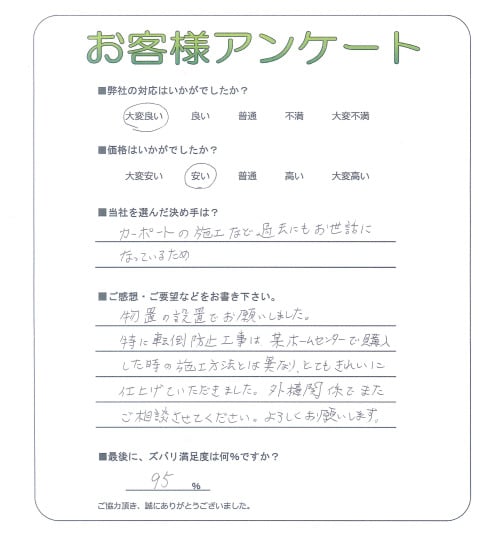 お客様アンケート
■弊社の対応はいかがでしたか？
大変良い 良い 普通 不満 大変不満
■価格はいかがでしたか？
大変安い 安い 普通 高い 大変高い
■当社を選んだ決め手は？
カーポートの施工などで過去にもお世話に
なっているため
■ご感想・ご要望などをお書き下さい。
物置の設置でお願いしました。
特に転倒防止工事は某ホームセンターで購入
した時の施工方法とは異なり、とてもきれいに
仕上げていただきました。外構関係でまた
ご相談させてください。よろしくお願いします。
■最後に、ズバリ満足度は何%ですか？
95 %
ご協力頂き、誠にありがとうございました。